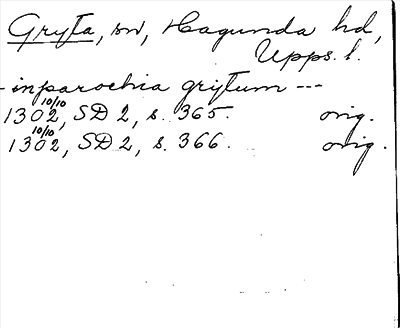 Gryta, sn, Hagunda hd,
Upps. l.
- inparochia gritum ---
1302 10/10, SD 2, s. 365. orig.
1302 10/10, SD 2, s. 366. orig.